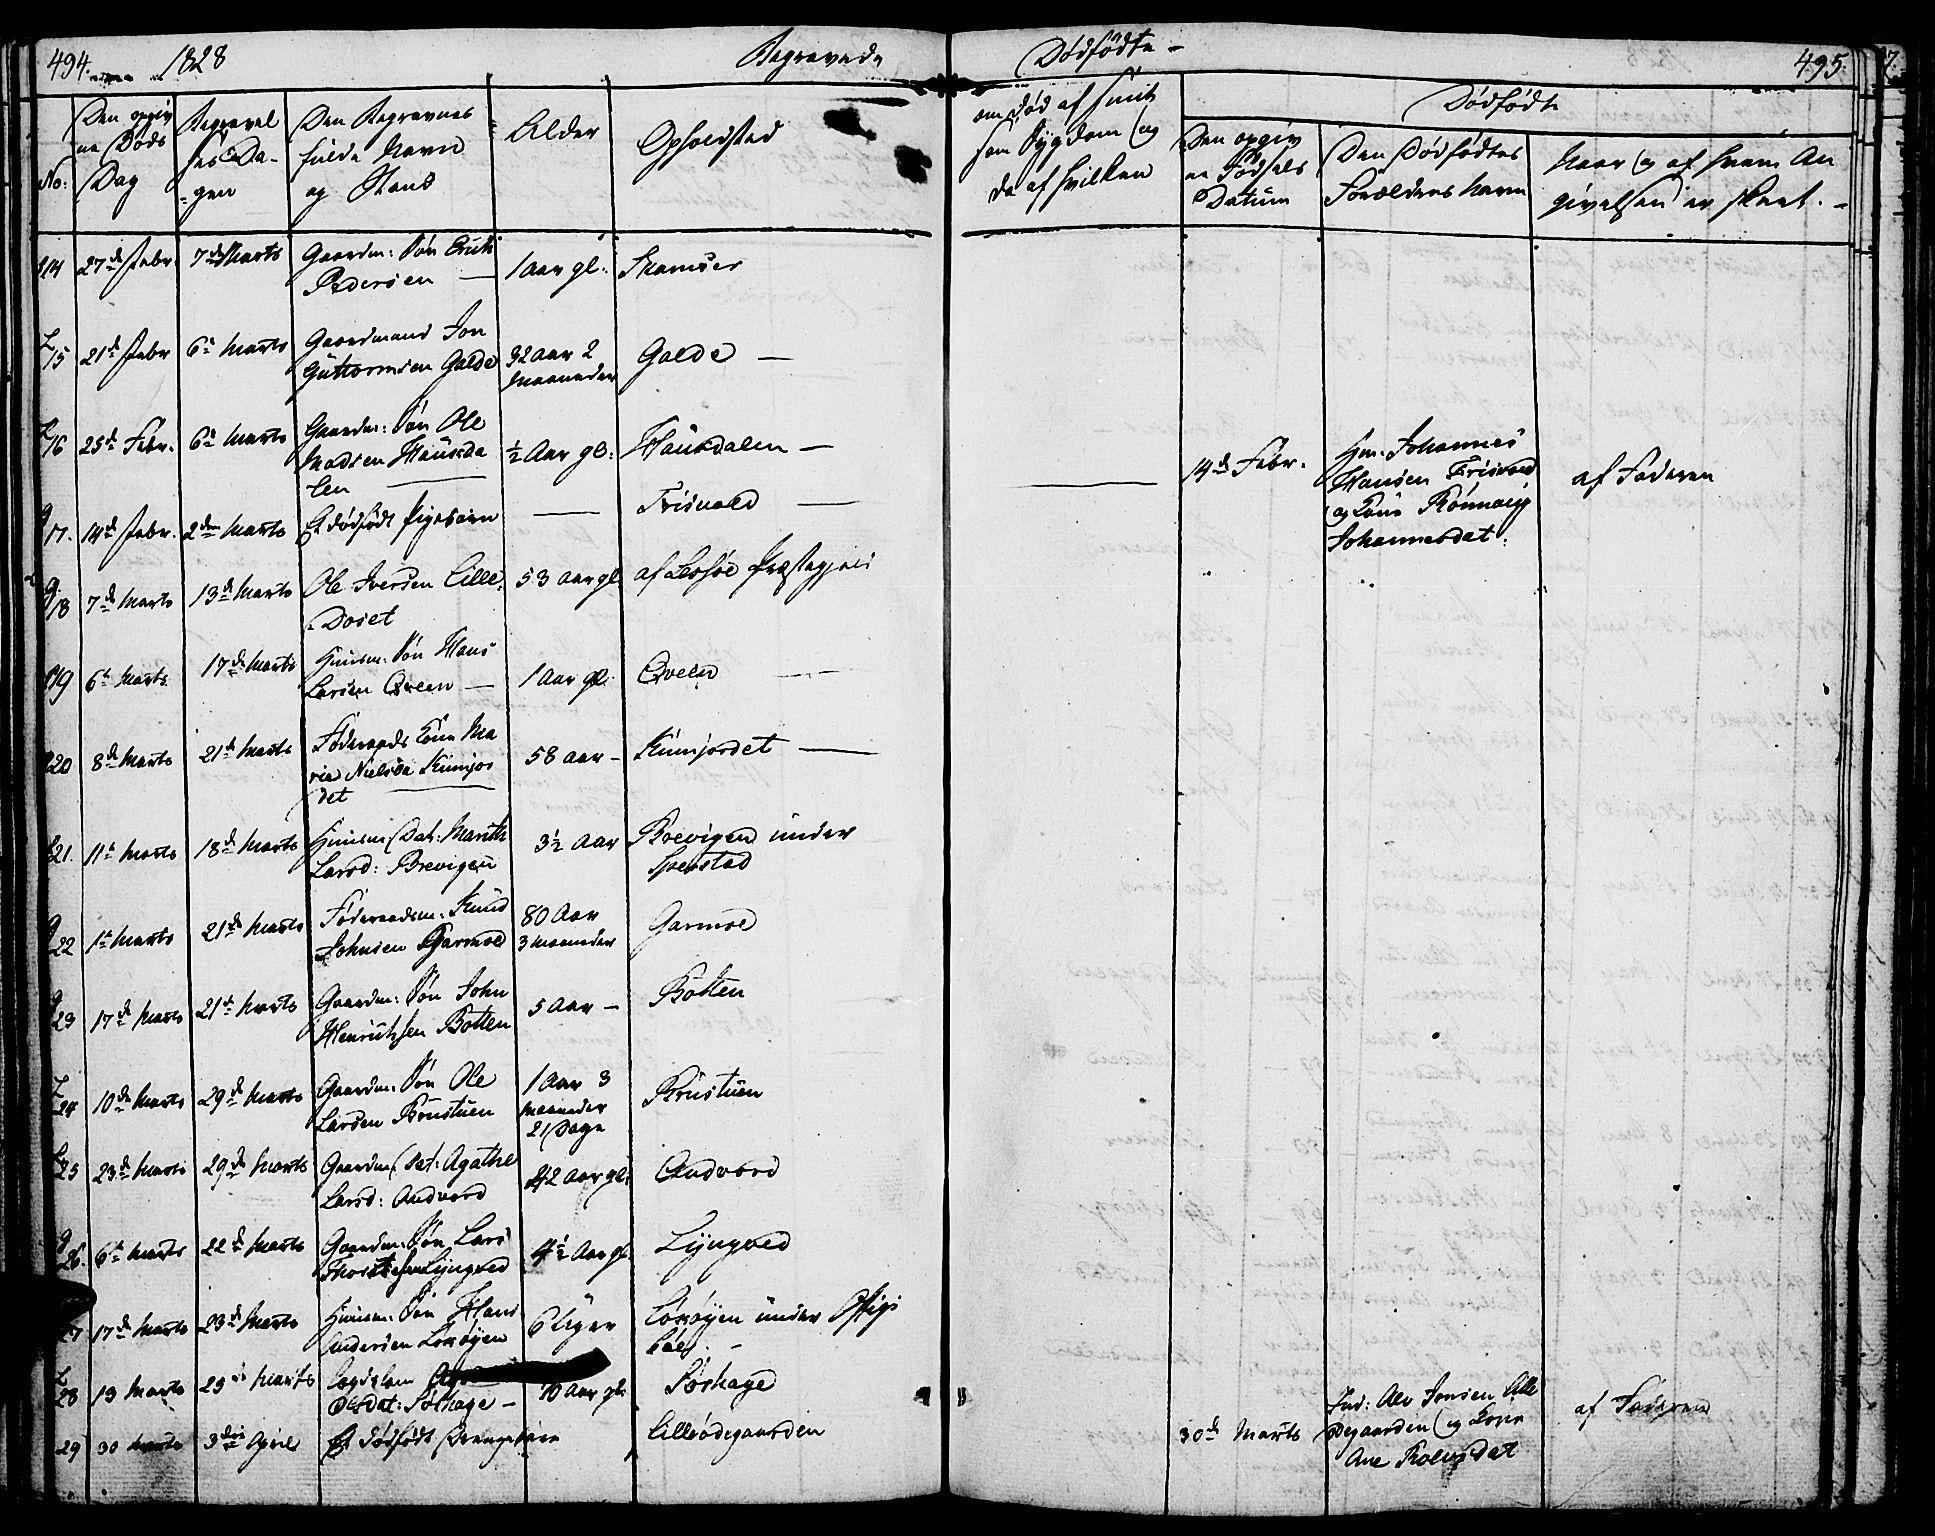 494. 1828 Begravede
No: Den opgivne Døds Dag Begravelses Dagen Den Begravnes fulde Navn og Stand Alder Opholdsted
14 27de Febr. 7de Marts Gaardm: Søn Erich
Pedersen — 1 Aar gl: Skamser
L 15 21de Febr 6te Marts Gaardmand Jon
Guttormsen Galde 32 Aar 2 Maaneder Galde —
L 16 25de Febr. 6te Marts Gaardm: Søn Ole
Madsen Hausda
len ½ Aar gl: Hausdalen —
g 17. 14de Febr. 2den Marts Et dødfødt Pigebarn — Frisvold —
g 18 7de Marts 13de Marts Ole Iversen Lille
Doset 53 Aar gl. af Lessøe Præstegjeld
19 6te Marts 17de Marts Huusm: Søn Hans
Larsen Qveen — 1 Aar gl. Qveen —
20 8de Marts 21de Marts Føderaads Kone Ma
rie Nielsda Kumjor
det 58 Aar — Kumjordet —
21. 11te Marts 18de Marts Huusm: Dat: Marith
Larsd: Brevigen 3½ Aar Brevigen under
Sperstad
g 22 1te Marts 21de Marts Føderaadsm: Knud
Johnsen Garmoe 80 Aar
3 Maaneder Garmoe
g 23 17de Marts 21de Marts Gaardm: Søn John
Henrichsen Botten 5 Aar — Botten
L 24 10de Marts 29de Marts Gaardm: Søn Ole
Larsen Brustuen 1 Aar 3
Maaneder
21 Dage Brustuen
L 25 23de Marts 29de Marts Gaardm: Dat: Agathe
Larsd: Andvord 42 Aar gl: Andvord
g 26. 6te Marts 22de Marts Gaardm: Søn Lars
Lyngved 4½ Aar gl. Lyngved
27 17de Marts 23de Marts Huusm: Søn Hans
Andersen Loxøyen 6 Uger Loxøyen under
L 28 19 Marts 29de Marts Logdslem
Olsdat: Sørhage — 70 Aar gl: Sørhage
29 30 Marts 3die April Et dødfødt Drengebarn Lilleødegaarden
Dødfødte — 495.
om Død af smit
som Sygdom og
da af hvilken
Dødfødt
Den opgiv
ne Fødsels
Datum
Den Dødfødtes
Forældres Navn
Naar og af hvem An
givelsen er skeet. —
— 14de Febr. Hm. Johannes
Hansen Frisvold
og Kone Rönnaug
Johannesdat: af Faderen
30de Marts Ind: Alv Jonsen Lille
ødegaarden og Kone
Ane Rolvsdat af Faderen